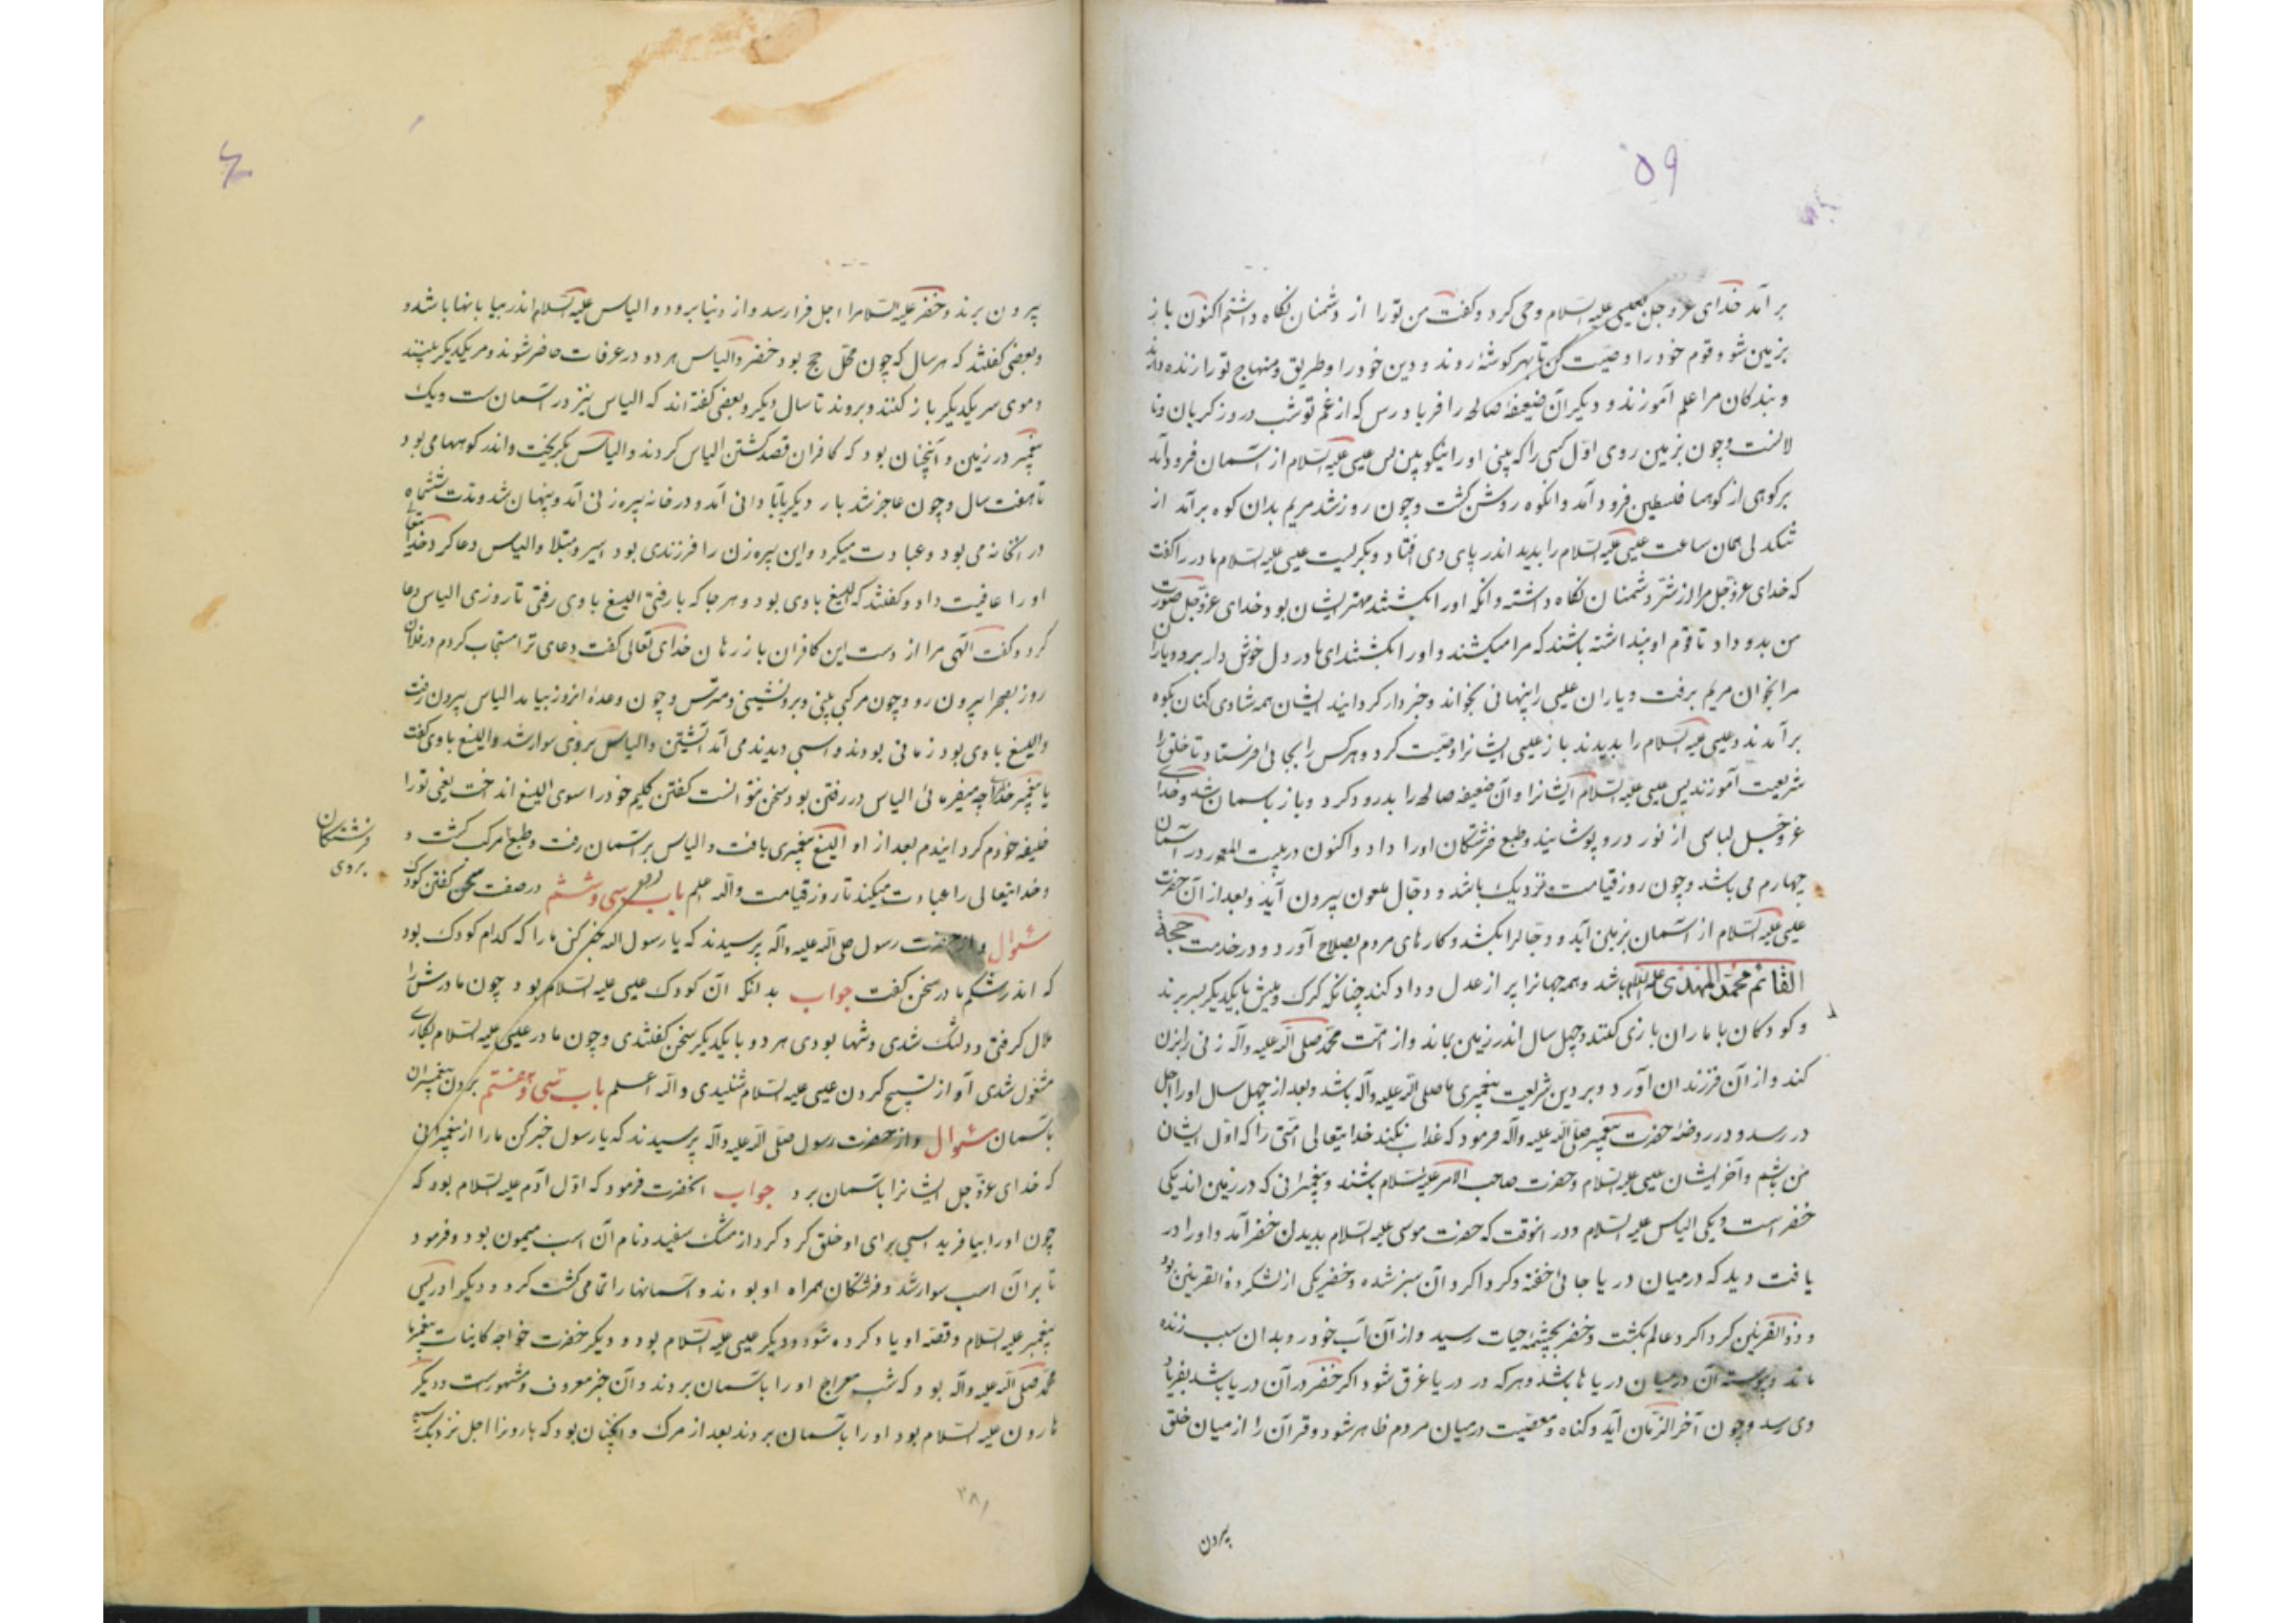 ۵۹
بر آمد خدای عزوجل بعیسی علیه السلام وحی کرد و کفت من تورا از دشمنان نکاه داشتم اکنون باز
بزمین شو و قوم خود را وصیت کن تا بهر کوشهٔ روند و دین خود را و طریق و منهاج تورا زنده دارند
و بندکان مرا علم آموزند و دیکر آن ضعیفهٔ صالحه را فریاد رس که از غم تو شب در روز کریان ونا
لانست و چون بزمین روی اول کسی را که بینی اورا نیکو بین پس عیسی علیه السلام از آسمان فرود آمد
برکوهی از کوهها فلسطین فرود آمد و انکوه روشن کشت و چون روز شد مریم بدان کوه برآمد از
تنکدلی همان ساعت عیسی علیه السلام را بدید اندر پای وی فتاد و بکریست عیسی علیه السلام مادر را کفت
که خدای عزوجل مرا از شر دشمنان نکاه داشته و انکه اورا بکشتند مهتر ایشان بود خدای عزوجل صورت
من بدو داد تا قوم او پنداشته باشند که مرا میکشند و اورا بکشتند ای مادر دل خوش دار برو و یاران
مرا بخوان مریم برفت و یاران عیسی را پنهانی بخواند و خبردار کردانید ایشان همه شادی کنان بکوه
برآمدند و عیسی علیه السلام را بدیدند باز عیسی ایشانرا وصیت کرد و هرکس را بجائی فرستاد تا خلق را
شریعت آموزند پس عیسی علیه السلام ایشانرا و آن ضعیفه صالحه را بدرود کرد و باز باسمان شد و خدای
عزوجل لباسی از نور درو پوشانید و طبع فرشتکان اورا داد و اکنون در بیت المعمور در آسمان
چهارم می باشد و چون روز قیامت نزدیک باشد و دجال ملعون بیرون آید و بعد از آن حضرت
عیسی علیه السلام از آسمان بزمین آید و دجالرا بکشد و کارهای مردم بصلاح آورد و در خدمت حجة
القائم محمد المهدی علیه السلام باشد و همه جهانرا پر از عدل و داد کند چنانکه کرک و میش با یکدیکر بسر برند
و کودکان با ماران بازی کنند و چهل سال اندر زمین بماند و از امت محمد صلی الله علیه واله زنی را بزن
کند و از آن فرزندان آورد و بر دین شریعت پیغمبری ما صلی الله علیه واله باشد و بعد از چهل سال اورا اجل
در رسد و در روضهٔ حضرت پیغمبر صلی الله علیه واله فرمود که عذاب نکند خدایتعالی امتی را که اول ایشان
من باشم و آخر ایشان عیسی علیه السلام و حضرت صاحب الامر علیه السلام باشند و پیغمبرانی که در زمین اند یکی
خضر است و یکی الیاس علیه السلام و در انوقت که حضرت موسی علیه السلام بدیدن خضر آمد و اورا در
یافت دید که درمیان دریا جائی خفته و کرداکرد آن سبز شده و خضر یکی از لشکر ذو القرنین بود
و ذو القرنین کرداکرد عالم بکشت و خضر بچشمهٔ حیات رسید و از آن آب خورد و بدان سبب زنده
ماند و پیوسته آن درمیان دریاها باشد و هرکه در دریا غرق شود اکر خضر در آن دریا باشد بفریاد
وی رسد و چون آخر الزمان آید و کناه و معصیت درمیان مردم ظاهر شود و قرآن را از میان خلق
بیرون
بیرون برند و خضر علیه السلام را اجل فرا رسد و از دنیا برود و الیاس علیه السلام اندر بیابانها باشد و
و بعضی کفتند که هر سال که چون محل حج بود خضر و الیاس هر دو در عرفات حاضر شوند و مر یکدیکر بینند
و موی سر یکدیکر باز کنند و بروند تا سال دیکر و بعضی کفته اند که الیاس نیز در آسمان ست و یک
پیغمبر در زمین و آنچنان بود که کافران قصد کشتن الیاس کردند و الیاس بکریخت و اندر کوهها می بود
تا هفت سال و چون عاجز شد بار دیکر بآبادانی آمد و در خانه پیره زنی آمد و پنهان شد و مدت ششماه
در انخانه می بود و عبادت میکرد و این پیره زن را فرزندی بود اسیر و مبتلا و الیاس دعا کرد خدایتعالی
اورا عافیت داد و کفتند که الیسع باوی بود و هرجا که بارفتی الیسع باوی رفتی تا روزی الیاس دعا
کرد و کفت الهی مرا از دست این کافران باز رهان خدای تعالی کفت دعای ترا مستجاب کردم در فلان
روز بصحرا بیرون رو و چون مرکبی بینی و برو نشینی و مترس و چون وعدهٔ انروز بیامد الیاس بیرون رفت
و الیسع باوی بود زمانی بودند و اسبی دیدند می آمد آتشین و الیاس بروی سوار شد و الیسع باوی کفت
یا پیغمبر خدای چه میفرمائی الیاس در رفتن بود سخن نتوانست کفتن کلیم خود را سوی الیسع انداخت یعنی تورا
خلیفه خودم کردانیدم بعد از او الیسع پیغمبری یافت و الیاس بر آسمان رفت و طبع مرک کشت و
فرشتکان
بروی
و خدایتعالی را عبادت میکند تا روز قیامت والله علم باب سی و ششم در صفت سخن کفتن کودک
سئوال و از حضرت رسول صلی الله علیه واله پرسیدند که یا رسول الله خبر کن مارا که کدام کودک بود
که اندر شکم مادر سخن کفت جواب بدانکه آن کودک عیسی علیه السلام بود چون مادرش را
ملال کرفتی و دلتنک شدی و تنها بودی هر دو با یکدیکر سخن کفتندی و چون مادر عیسی علیه السلام بکاری
مشغول شدی آواز تسبیح کردن عیسی علیه السلام شنیدی والله اعلم باب سی و هفتم بردن پیغمبران
باسمان سئوال و از حضرت رسول صلی الله علیه واله پرسیدند که یا رسول خبر کن مارا از پیغمبرانی
که خدای عزوجل ایشانرا باسمان برد جواب انحضرت فرمود که اول آدم علیه السلام بود که
چون اورا بیافرید اسبی برای او خلق کرد کرد از مشک سفید و نام آن اسب میمون بود و فرمود
تا بران اسب سوار شد و فرشتکان همراه او بودند و آسمانها را تمامی کشت کرد و دیکر ادریس
پیغمبر علیه السلام و قصه او یاد کرده شود و دیکر عیسی علیه السلام بود و دیکر حضرت خواجه کاینات پیغمبر ما
محمد صلی الله علیه واله بود که شب معراج اورا باسمان بردند و آن خبر معروف و مشهورست و دیکر
هارون علیه السلام بود اورا باسمان بردند بعد از مرک و انچنان بود که هارونرا اجل نزدیک رسید